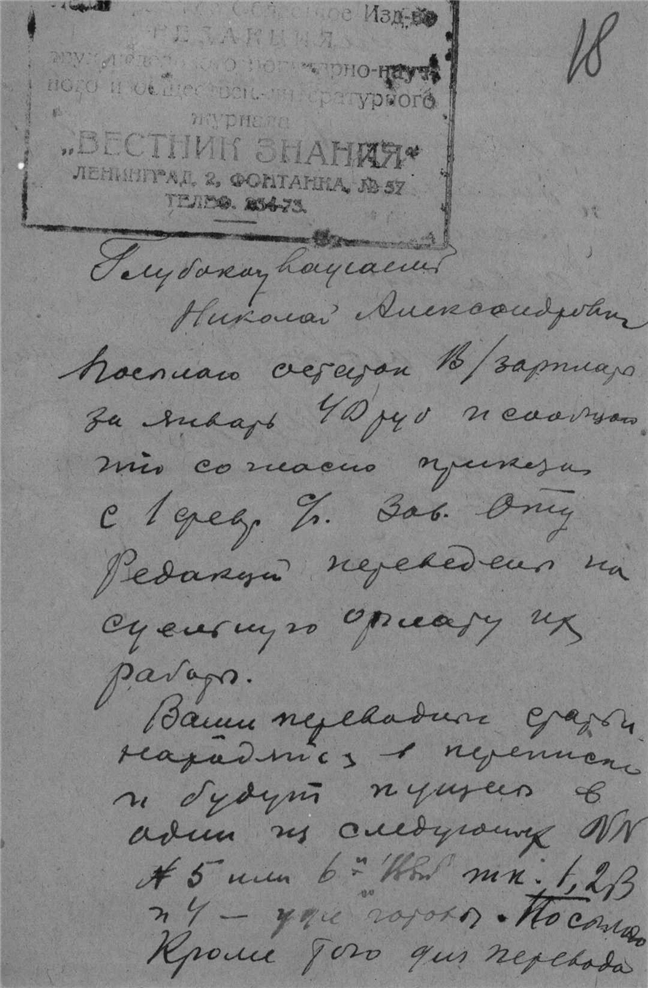 18
Изд-во
РЕДАКЦИЯ
популярно-науч
ного и обществен.-литературного
журнала
„ВЕСТНИК ЗНАНИЯ"
ЛЕНИНГРАД, 2, ФОНТАНКА, № 57
ТЕЛЕФ. 234-73.
Глубокоуважаемый
Николай Александрович
Посылаю остаток В/зарплаты
за январь 40 руб и сообщаю
что согласно приказа
с 1 февр. Зав. Отд
Редакций переведены на
сдельную оплату их
работы.
Ваши переводные статьи
находятся в переписке
и будут пущены в
один из следующих NN
№ 5 или 6 тк. 1, 2, 3
и 4 – уже готовы. Посылаю
Кроме того для перевода